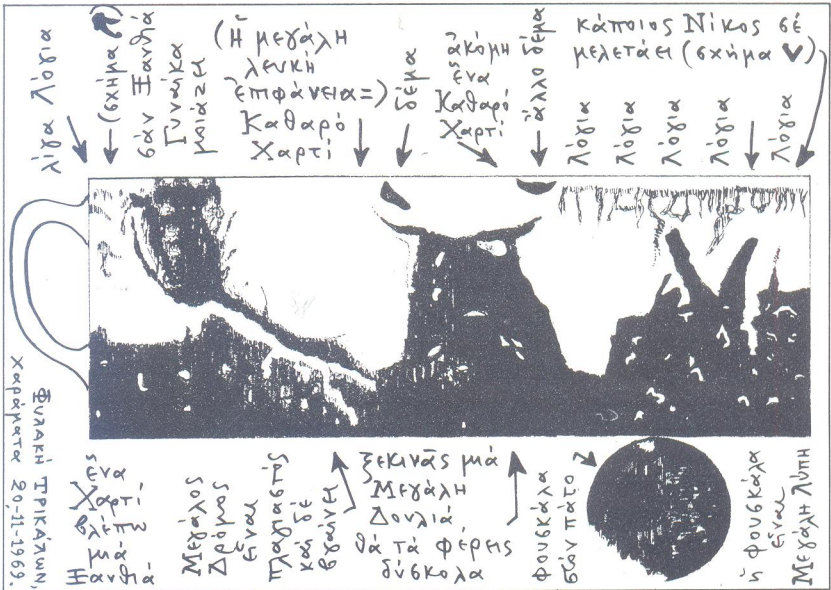 λίγα Λόγια
(σχῆμα
σάν Ξανθιά
Γυναίκα
μοιάζει
(Ἡ μεγάλη
λευκή
ἐπιφάνεια=)
Καθαρό
Χαρτί
δέμα
ἀκόμη
ἕνα
Καθαρό
Χαρτί
ἄλλο δέμα
κάποιος Νίκος σέ
μελετάει (σχῆμα V)
Λόγια
Λόγια
Λόγια
Λόγια
Λόγια
Φυλακή Τρικάλων,
χαράματα 20,-11-1969.
ἕνα
Χαρτί
βλέπω
μιά
Ξανθιά
Μεγάλος
Δρόμος
εἶναι
πλαγιαστός
καί δέ
βγαίνει
ξεκινᾶς μιά
Μεγάλη
Δουλιά
θά τά φέρεις
δύσκολα
φουσκάλα
στόν πάτο
ἡ φουσκάλα
εἶναι
Μεγάλη Λύπη